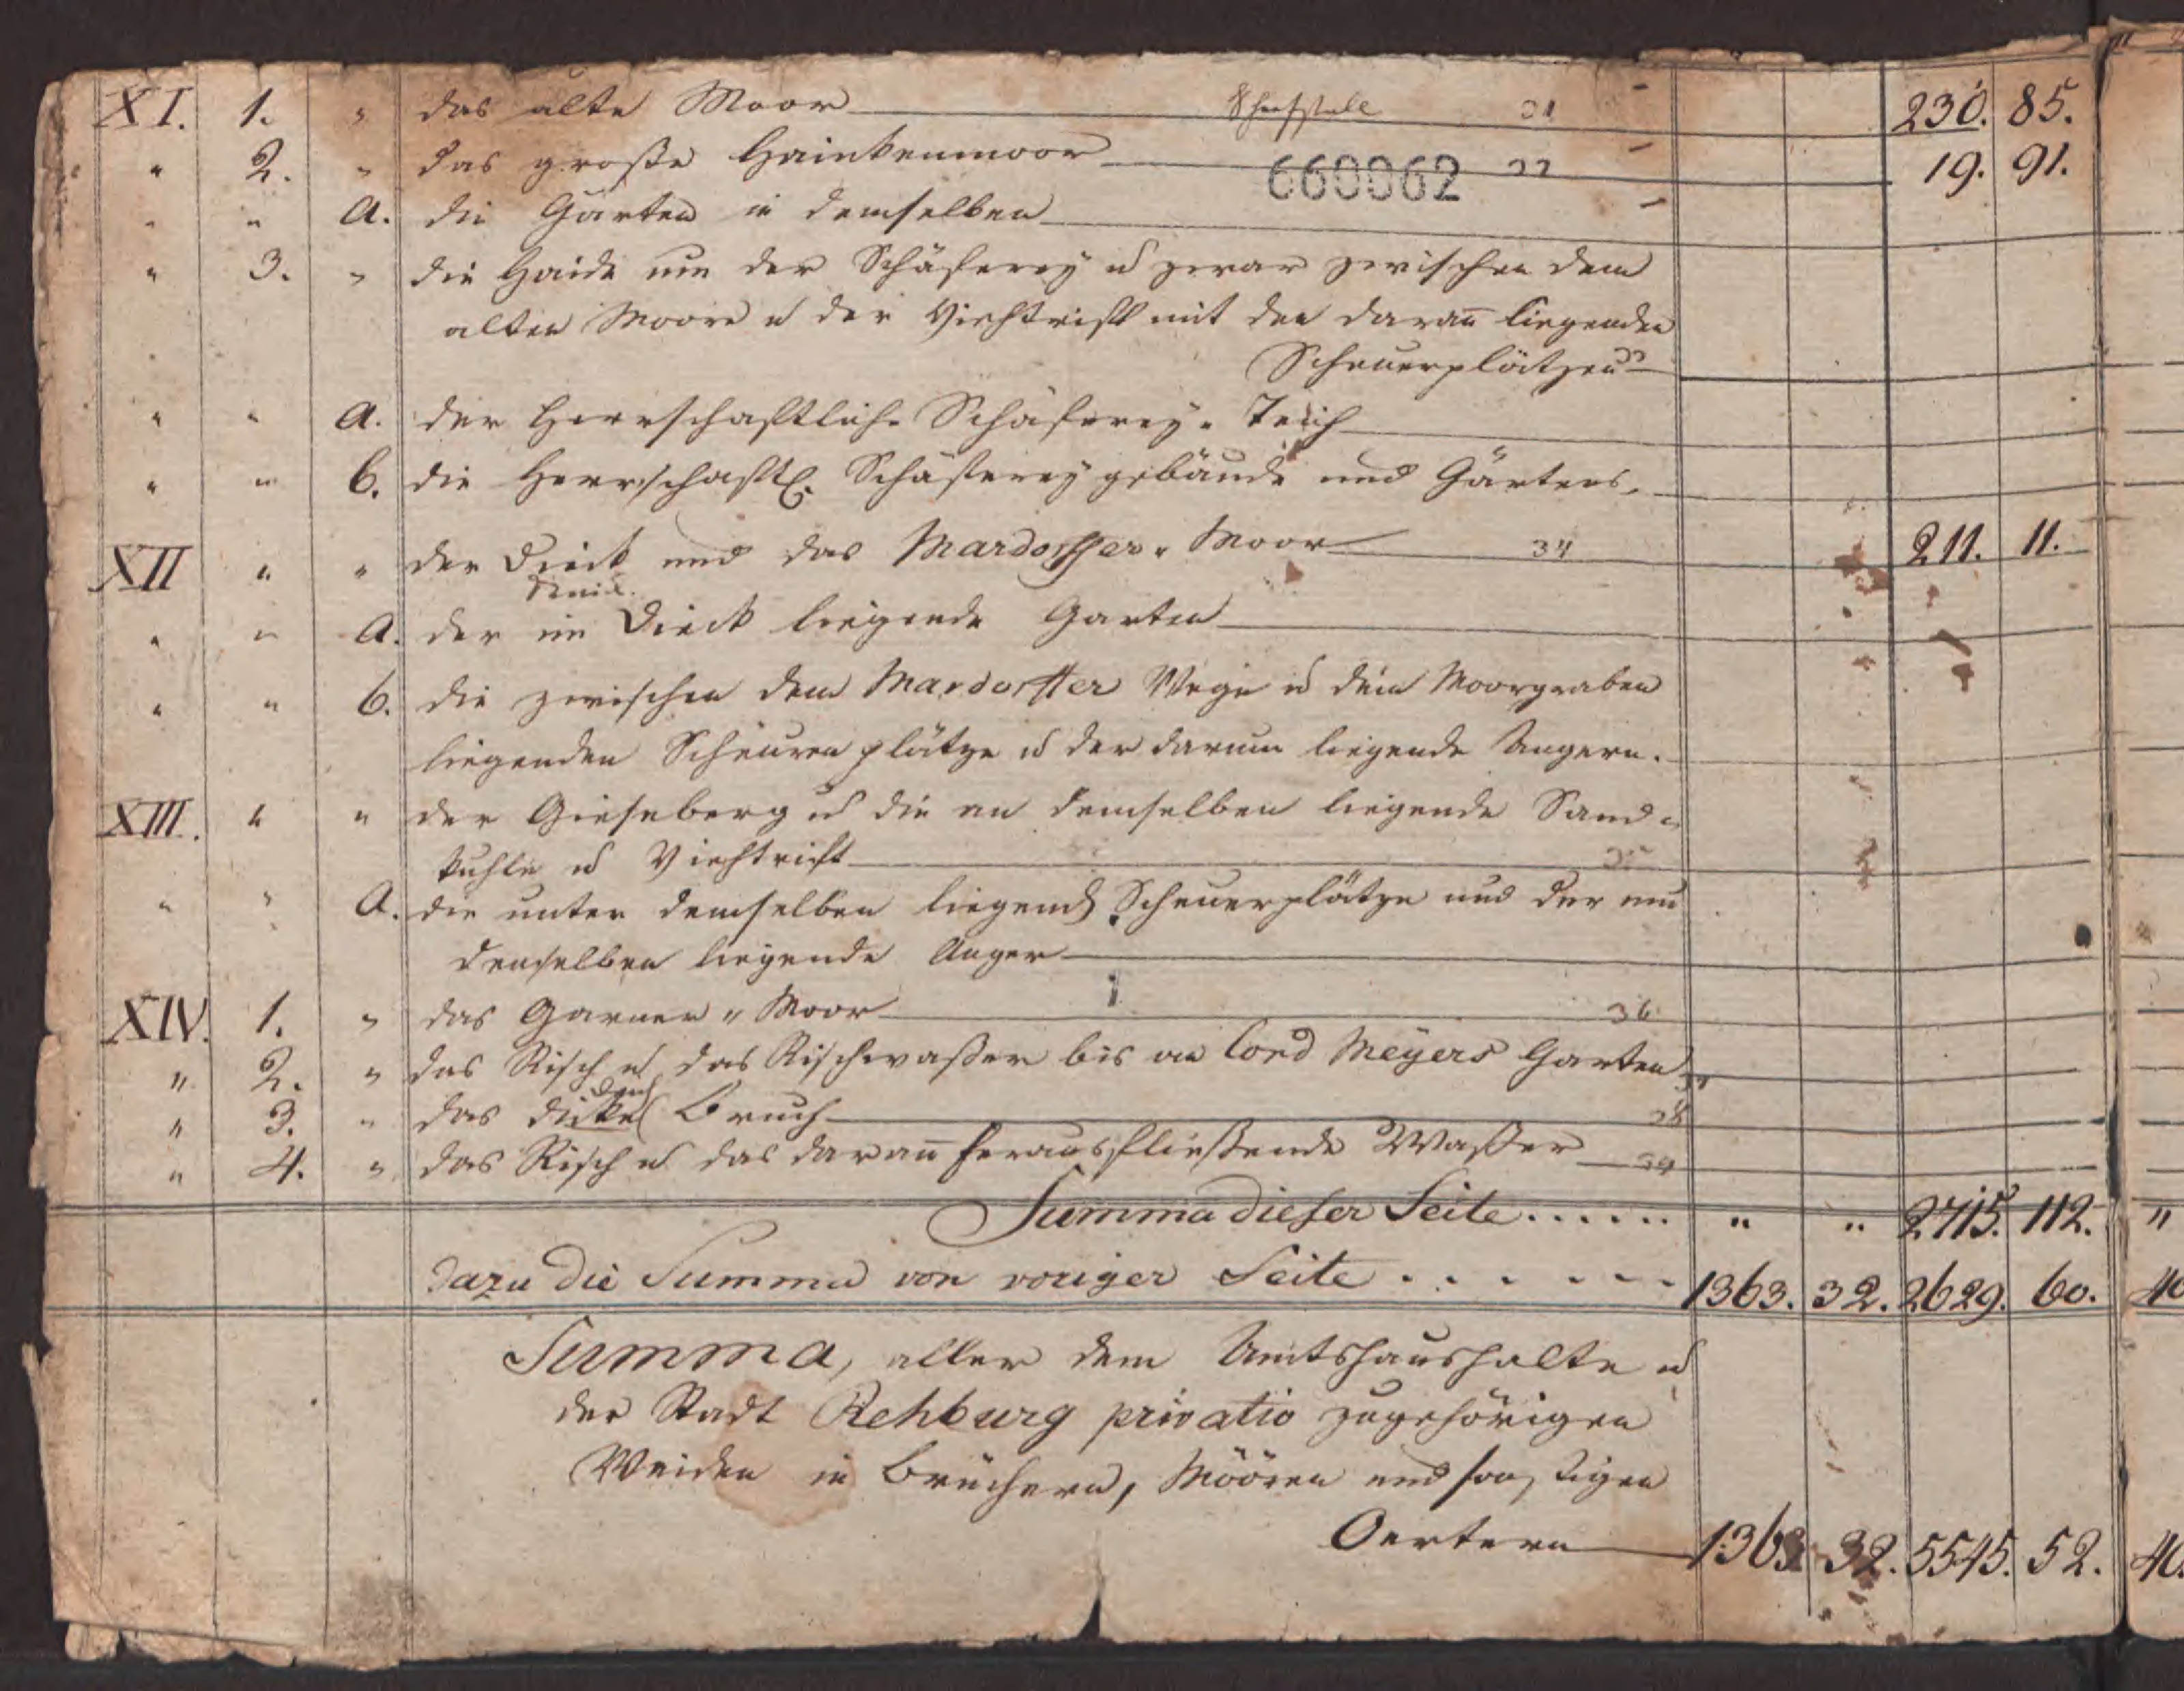 XI. 1. " das alte Moor Schafstall 31 230. 85.
" 2. " das große Hainkenmoor 660062 19. 91.
" " a. die Gärten in demselben
" 3. " die Haide um der Schäferey u zwar zwischen dem
alten Moore u der Viehtrift mit den daran liegenden
Scheuerplätzen
" " a. der Herrschaftliche Schäferey-Teich
" " b. die Herrschaftl. Schäfereygebäude und Gärtens.
XII " " der Dieck und das Mardorffer-Moor 34 211. 11.
" " a. der im Dieck liegende Garten
" " b. die zwischen dem Mardorffer Wege u dem Moorgraben
liegenden Scheurenplätze u der darum liegende Angern.
XIII. " " der Gieseberg u die an demselben liegende Sand-
kuhle u Viehtrift
" " a. die unter demselben liegend Scheuerplätze und der um
denselben liegende Anger
XIV. 1. " das Garner-Moor 36
" 2. " das Risch u das Rischwaßer bis an Cord Meyers Garten
" 3. " das dicke Bruch 38
" 4. " das Risch u das daran herausfließende Waßer 39
Summa dieser Seite . . . . . . " " 2715. 112. "
dazu die Summa von voriger Seite . . . . . . 1363. 32. 2629. 60. 40
Summa, aller dem Amtshaushalte u
der Stadt Rehburg privatio zugehörigen
Weiden in Brüchern, Möören und sonstigen
Oertern 1363. 32. 5545. 52. 40.